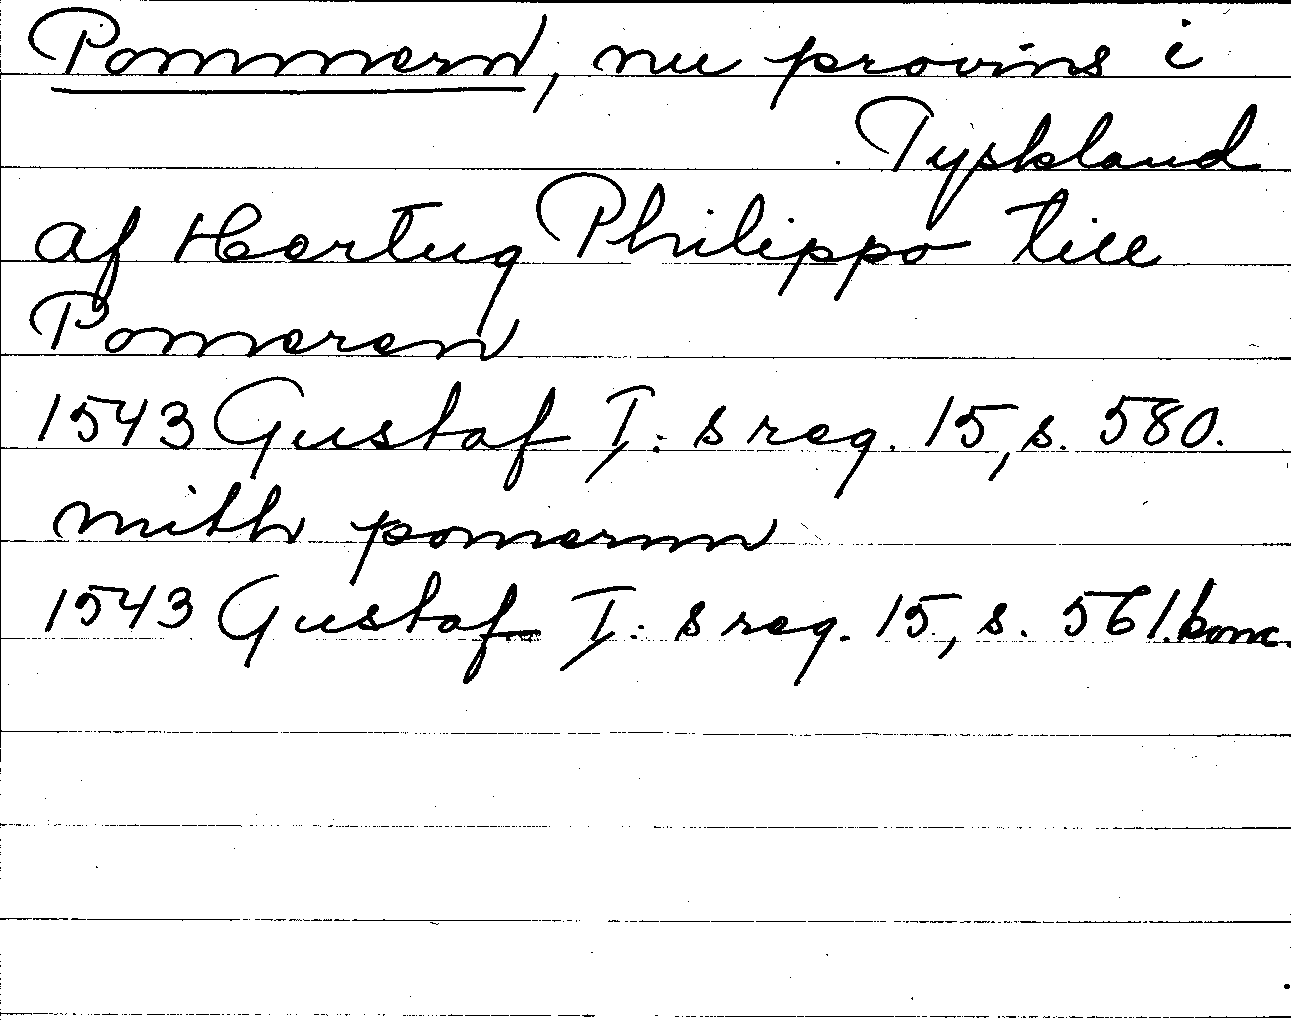 Pommern, nu provins i
Tyskland
af Hertug Philippo till
Pomeren
1543 Gustaf I: s reg. 15, s. 580.
mith pomernn
1543 Gustaf I: s reg. 15, s. 561. konc.